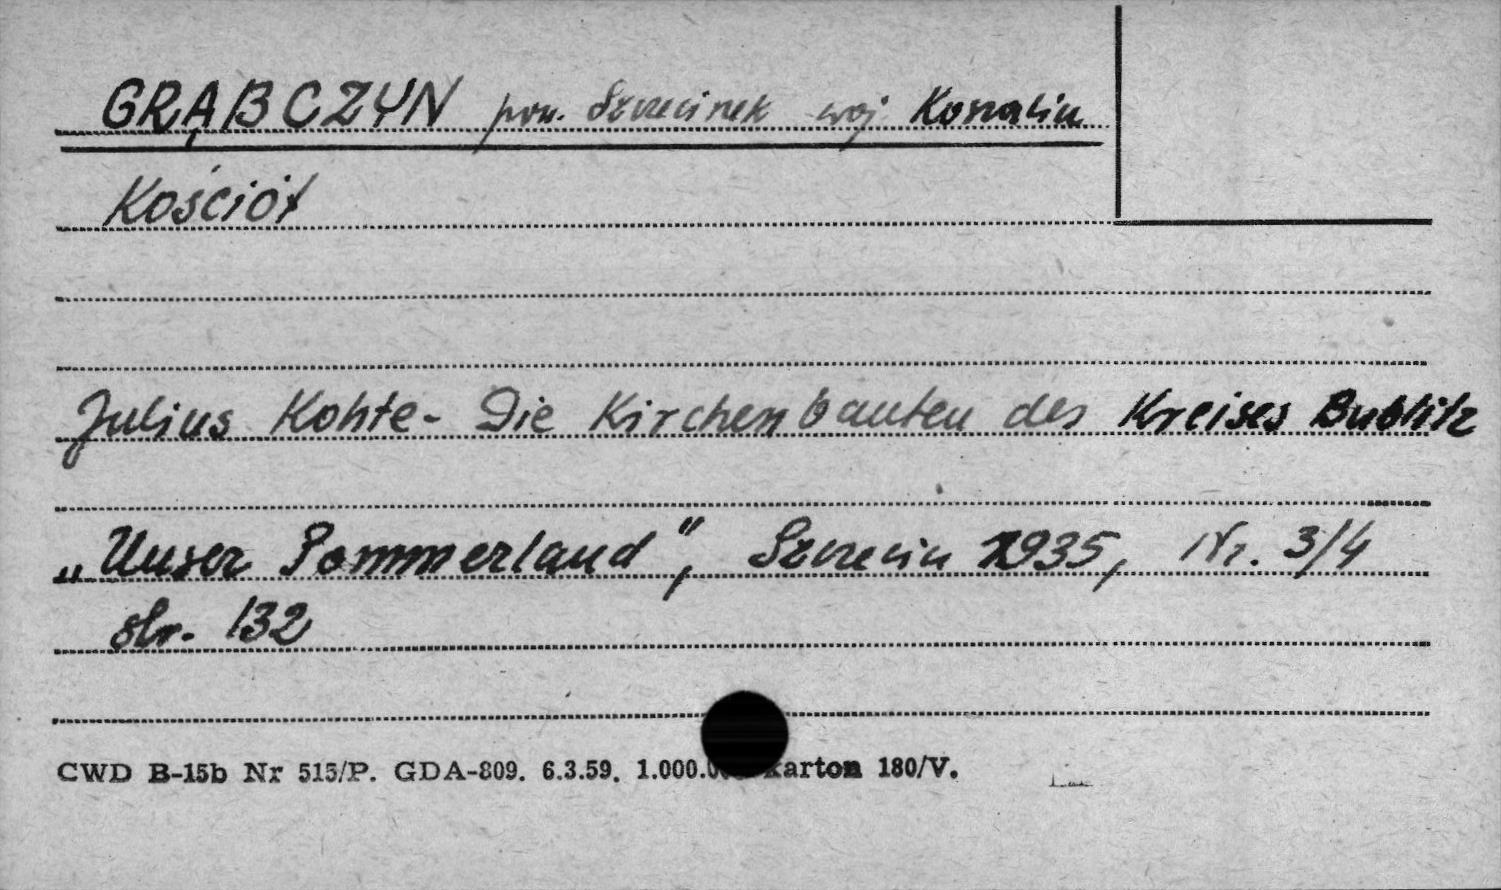 GRĄBCZYN pow. Szczecinek woj Koszalin
Kościół
Julius Kohte - Die Kirchenbauten des Kreises Bublitz
„Unser Pommerland", Szczecin 1935, Nr. 3/4
str. 132
CWD B-15b Nr 515/P. GDA-809. 6.3.59. karton 180/V.